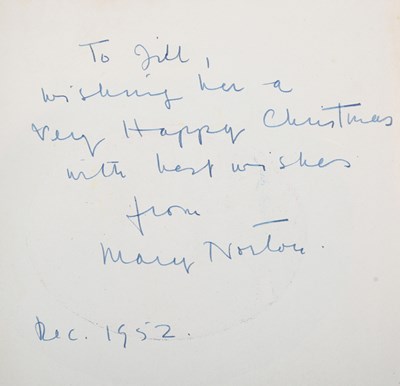 To Jill,
wishing her a
very Happy Christmas
with best wishes
from
Mary Norton.
Dec. 1952.